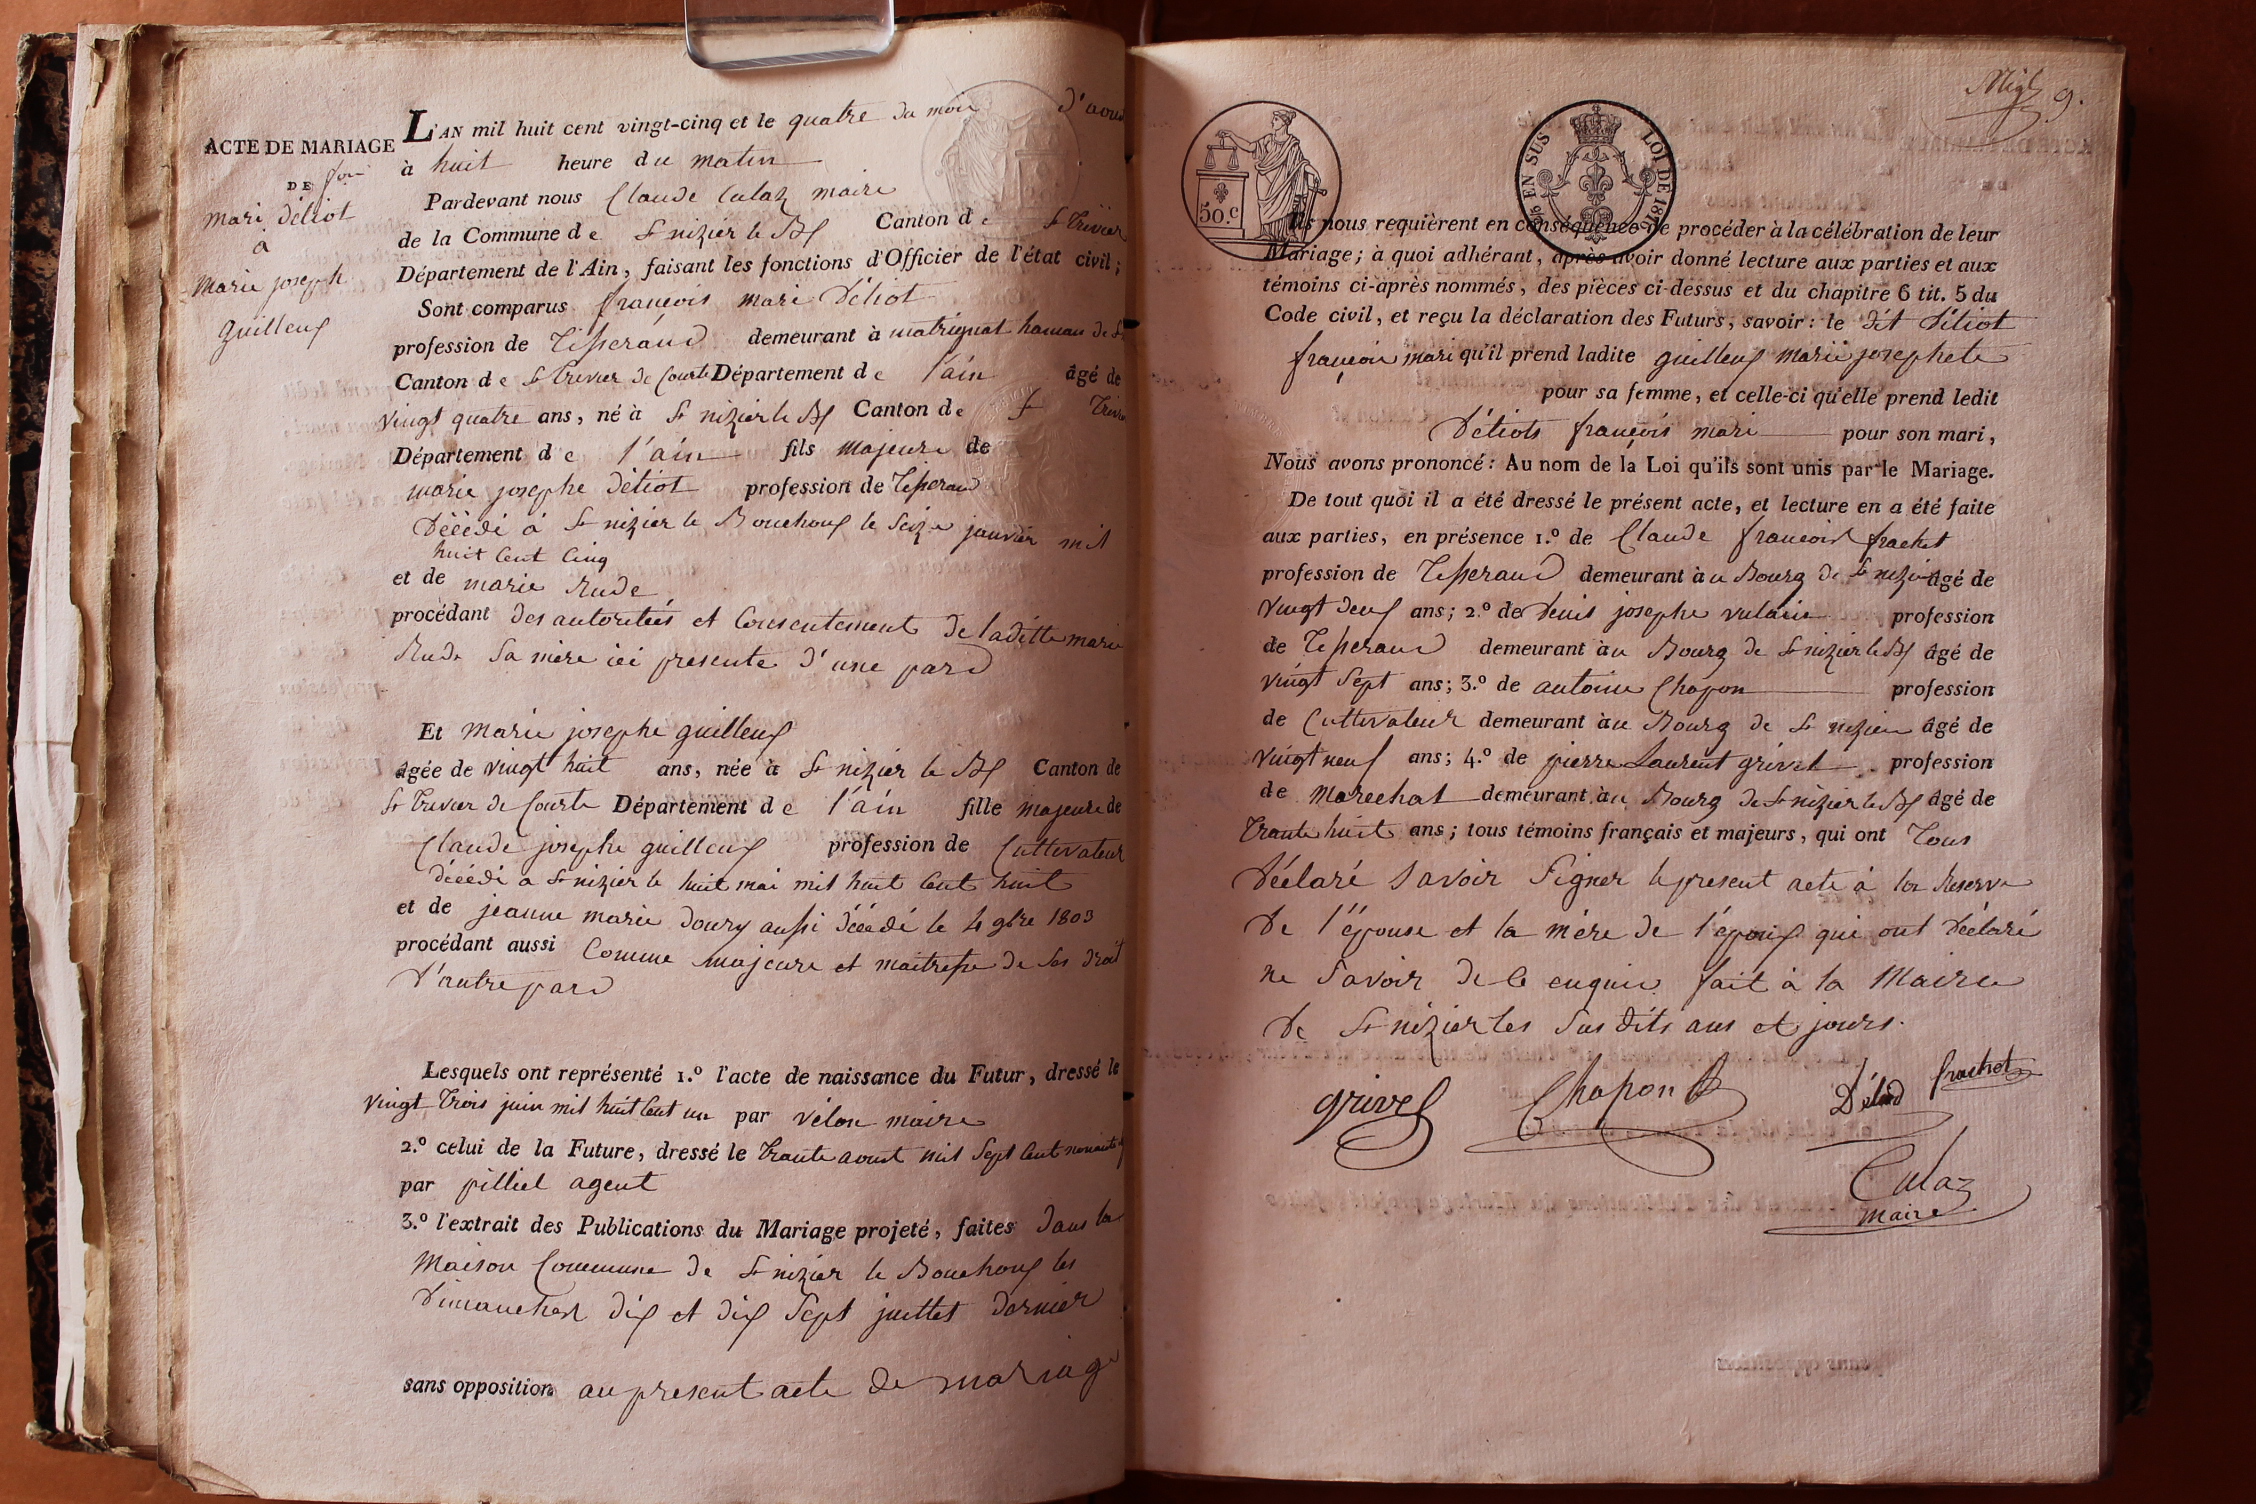 ACTE DE MARIAGE
DE
mari détiot
à
marie joseph
guilleux
L'AN mil huit cent vingt-cinq et le quatre du mois d'aout
à huit heure du matin
Pardevant nous Claude Culaz maire
de la Commune de St nizier le Bx Canton de St Trivier
Département de l'Ain, faisant les fonctions d'Officier de l'état civil;
Sont comparus françois mari Détiot
profession de Tisserand demeurant à matrignat hameau de St
Canton de St trivier de Courte Département de l'ain âgé de
vingt quatre ans, né à St nizier le Bx Canton de St Trivier
Département de l'ain fils majeure de
marie josephe détiot profession de Tisserand
Décédé à St nizier le Bouchoux le Seize janvier mil
huit Cent Cinq
et de marie Rude
procédant des autoritées et Consentement de laditte marie
Rude Sa mère ici presente d'une pard
Et Marie josephe guilleux
âgée de vingt huit ans, née à St nizier le Bx Canton de
St trivier de Courte Département de l'ain fille majeure de
Claude josephe guilleux profession de Cultivateur
décédé a St nizier le huit mai mil huit Cent huit
et de jeanne marie doury aussi décédé le 4 9bre 1803
procédant aussi Comme majeure et maitresse de Ses droit
D'autre pard
Lesquels ont représenté 1.º l'acte de naissance du Futur, dressé le
vingt Trois juin mil huit Cent un par vélon maire
2.º celui de la Future, dressé le Trante aoust mil Sept Cent
par pilliel agent
3.º l'extrait des Publications du Mariage projeté, faites Dans la
Maison Commune de St nizier le Bouchoux les
Dimanches dix et dix Sept juillet dernier
sans opposition au present acte de mariage
9.
50.c
EN SUS LOI DE 1816
Ils nous requièrent en conséquence de procéder à la célébration de leur
Mariage; à quoi adhérant, après avoir donné lecture aux parties et aux
témoins ci-après nommés, des pièces ci-dessus et du chapitre 6 tit. 5 du
Code civil, et reçu la déclaration des Futurs, savoir: le dit Détiot
françois mari qu'il prend ladite guilleux marie josephete
pour sa femme, et celle-ci qu'elle prend ledit
Détiots françois mari pour son mari,
Nous avons prononcé: Au nom de la Loi qu'ils sont unis par le Mariage.
De tout quoi il a été dressé le présent acte, et lecture en a été faite
aux parties, en présence 1.º de Claude francois frachet
profession de Tisserand demeurant àu Bourg de St nizier âgé de
vingt deux ans; 2.º de Denis josephe vularin profession
de Tisserand demeurant àu Bourg de St nizier le Bx âgé de
vingt Sept ans; 3.º de antoine Chapon profession
de Cultivateur demeurant àu Bourg de St nizier âgé de
vingt neuf ans; 4.º de pierre Laurent grivel profession
de Marechal demeurant àu Bourg de St nizier le Bx âgé de
Trante huit ans; tous témoins français et majeurs, qui ont Tous
Déclaré Savoir Signer le present acte à la Reserve
De l'épouse et la mère de l'époux qui ont Déclaré
ne Savoir de ce enquis fait à la Mairie
de St nizier les Sus dits ans et jours.
grivel Chapon Détiod frachet
Culaz
maire